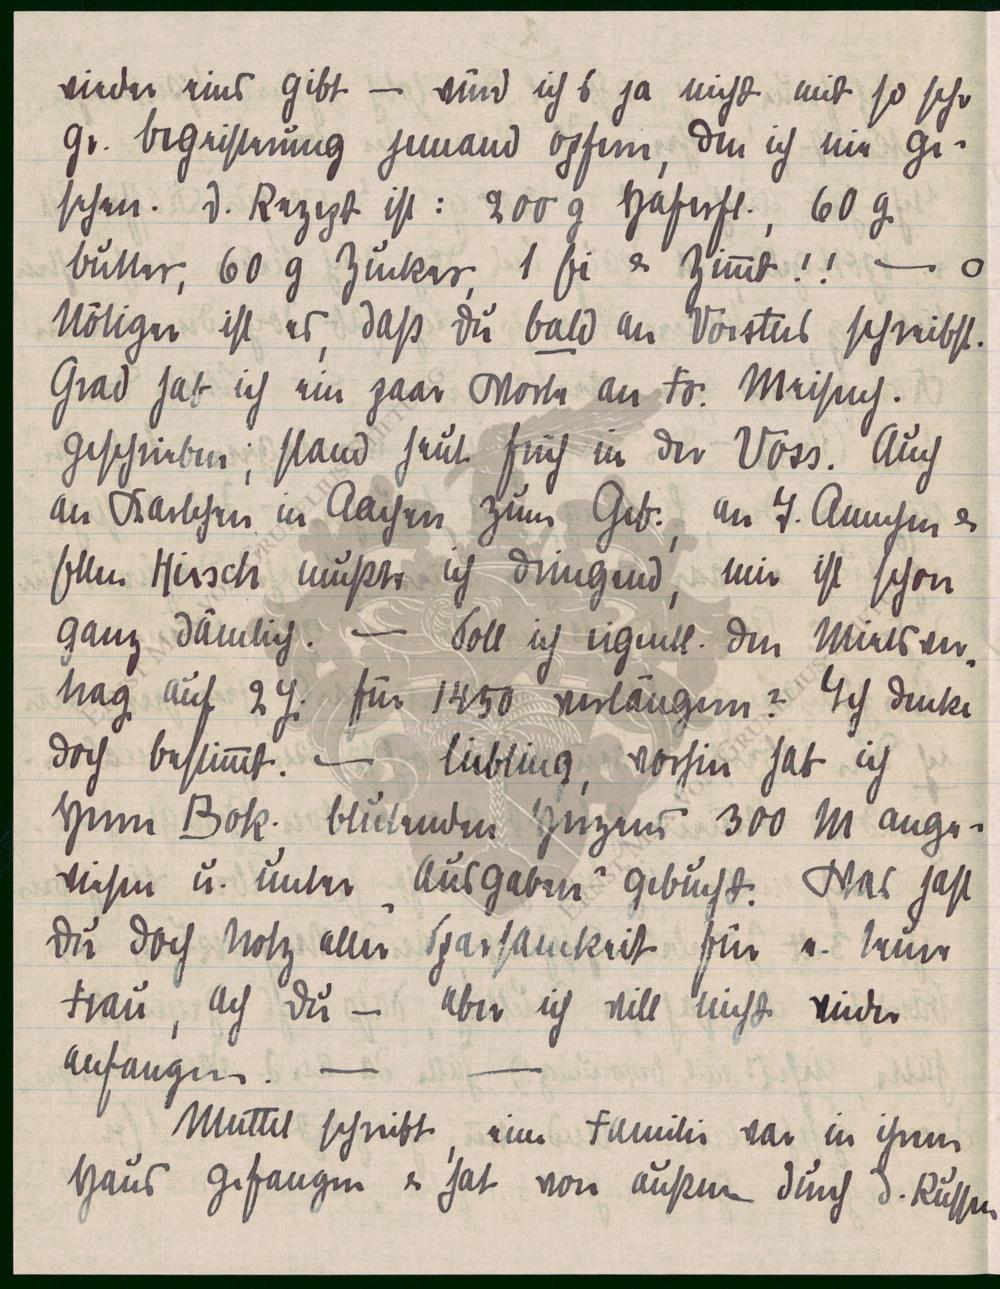 wieder eins gibt — würd ich's ja nicht mit so sehr
gr. Begeisterung jemand opfern, den ich nie ge-
sehen. D. Rezept ist: 200 g Haferfl., 60 g
Butter, 60 g Zucker, 1 Ei & Zimt!! — o
Nötiger ist es, daß du bald an Vorster schreibst.
Grad hab ich ein paar Worte an Fr. Meisnch.
geschrieben, stand heut früh in der Voss. Auch
an Karlchen in Aachen zum Geb., an T. Annchen &
Ellen Hirsch mußte ich dringend, mir ist schon
ganz dämlich. — Soll ich eigentl. den Mietsver-
trag auf 2 J. für 1450 verlängern? Ich denke
doch bestimmt. — Liebling, vorhin hab ich
Herrn Bok. blutenden Herzens 300 M ange-
wiesen u. unter „Ausgaben" gebucht. Was hast
du doch trotz aller Sparsamkeit für e. teure
Frau, ach du — aber ich will nicht wieder
anfangen. — —
Muttel schreibt, eine Familie war in ihrem
Haus gefangen & hat von außen durch d. Russen